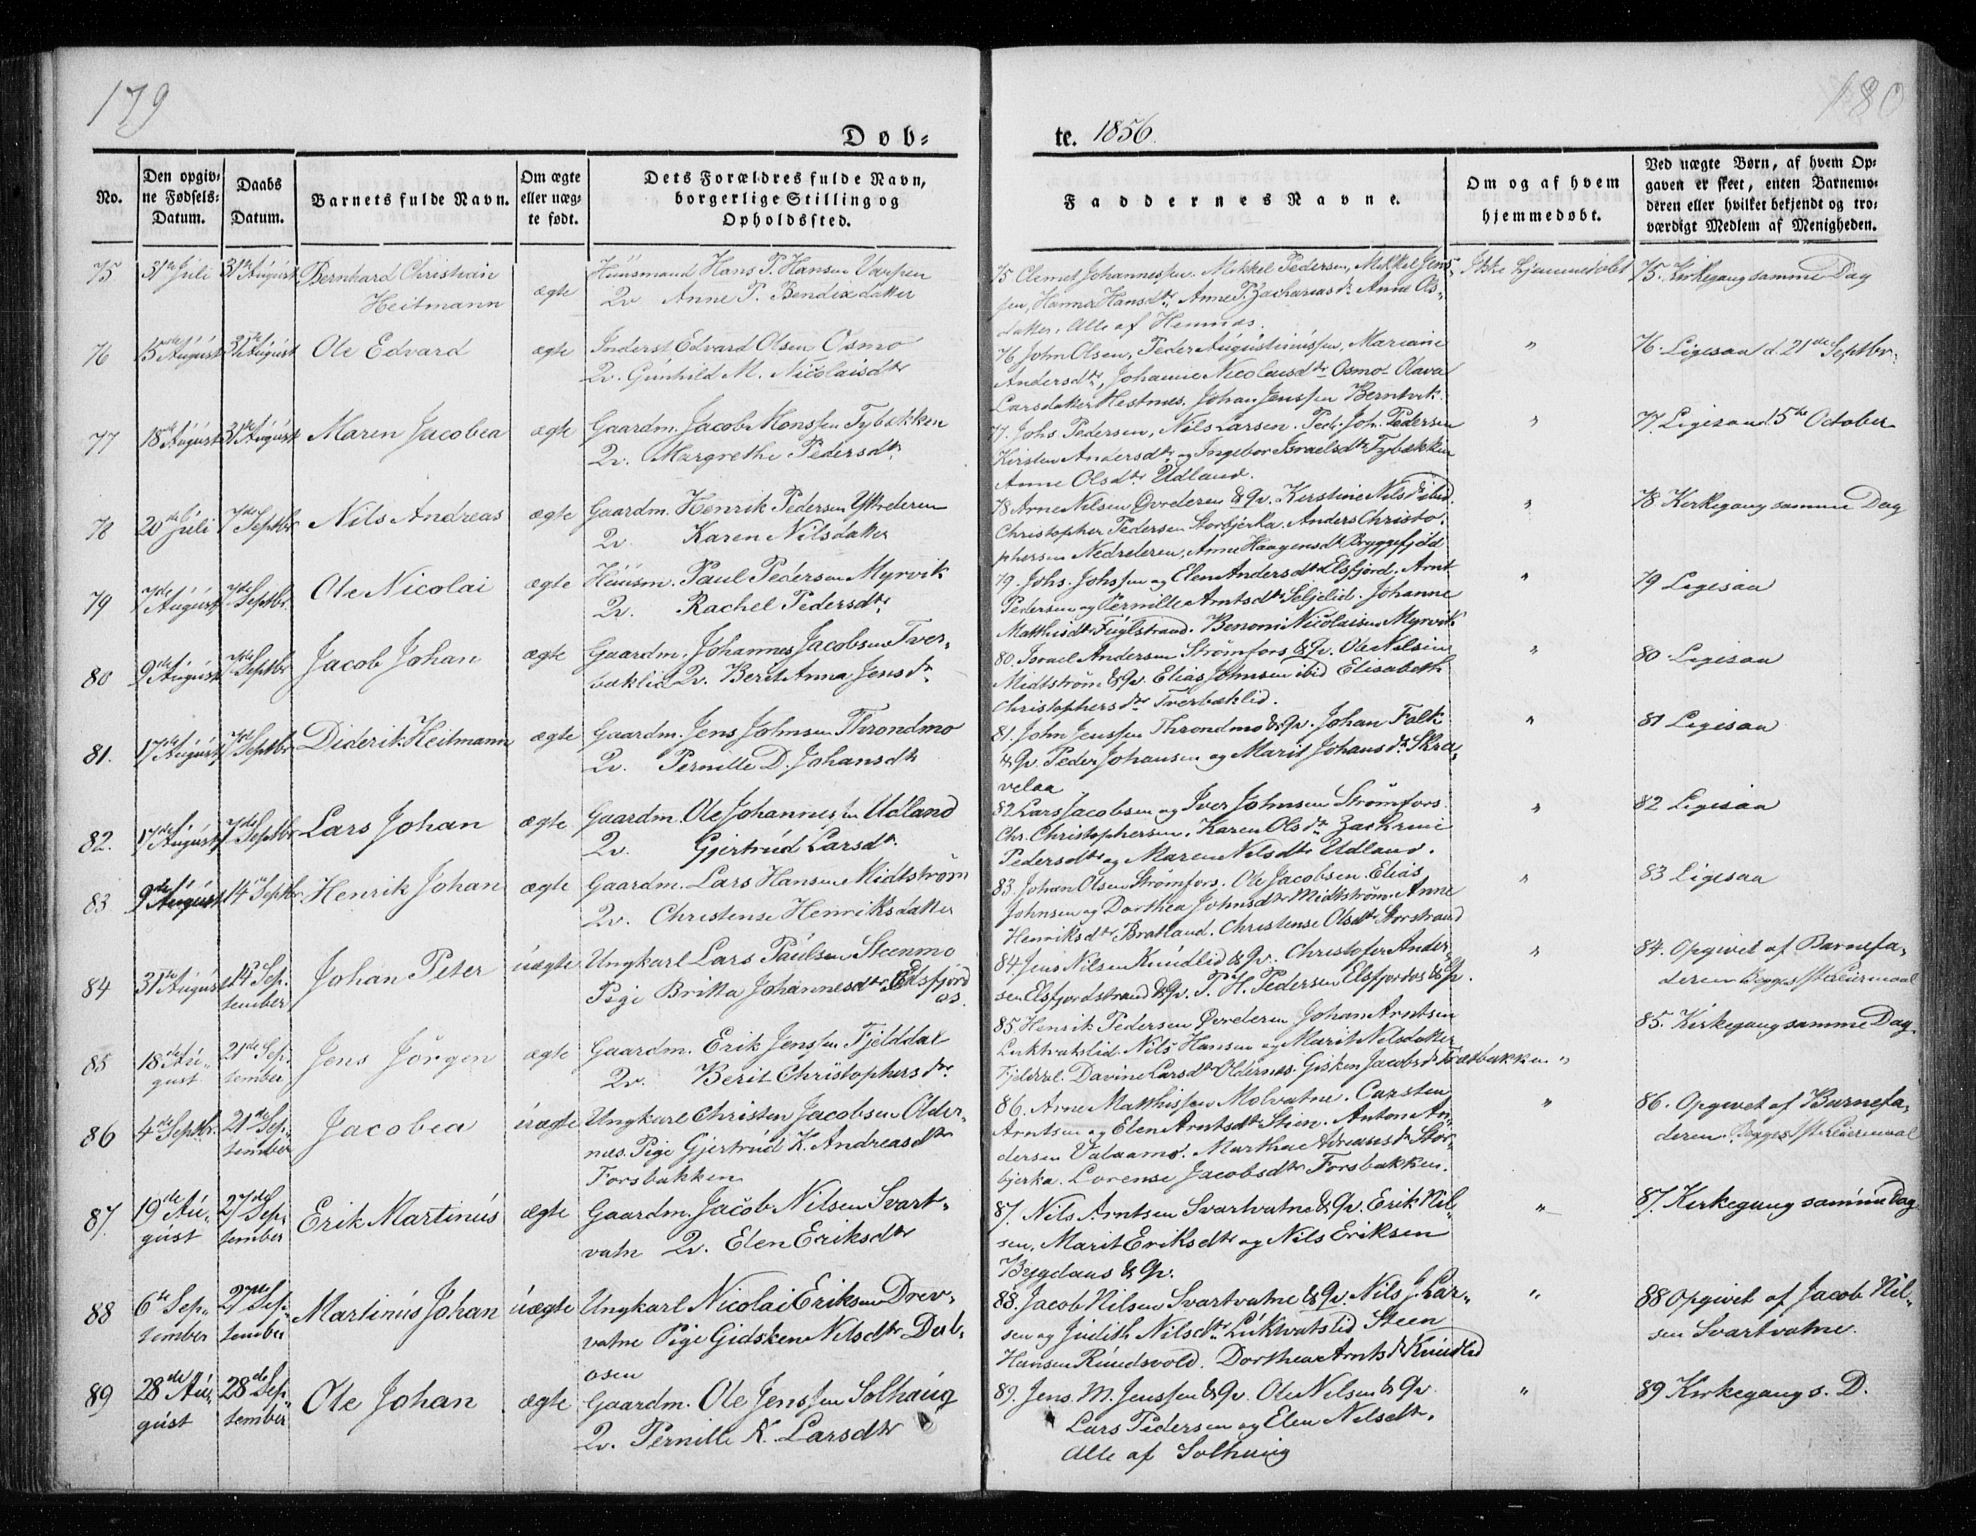 179
180
Døb-
te. 1856.
No.
Den opgiv-
ne Fødsels-
Datum.
Daabs
Datum.
Barnets fulde Navn.
Om ægte
eller uæg-
te født.
Dets Forældres fulde Navn,
borgerlige Stilling og
Opholdssted.
Faddernes Navne.
Om og af hvem
hjemmedøbt.
Ved uægte Børn, af hvem Op-
gaven er skeet, enten Barnemo-
deren eller hvilket bekjendt og tro-
værdigt Medlem af Menigheden.
75 31te Juli 31te August Bernhard Christian
Heitmann
ægte
Huusmand Hans P. Hansen Varpen
Qv. Anne P. Bendixdatter
75 Clemet Johannessen. Mikkel Pedersen, Mikkel Jens-
sen, Hanna Hansdtr, Anne P. Zachariasdr Anne Ols-
datter, Alle af Hemnes.
Ikke hjemmedøbt
75. Kirkegang samme Dag
76 15de August 31te August Ole Edvard ægte
Inderst Edvard Olsen Osmo
Qv. Gunhild M. Nicolaisdtr
76 John Olsen, Peder Augustinussen, Mariane
Andersdtr, Johanne Nicolaisdtr Osmo. Olava
Larsdatter Hestnes. Johan Jenssen Berntvik
"
76. Ligesaa d. 21de Septbr.
77 18de August 31te August Maren Jacobea ægte
Gaardm. Jacob Monssen Tybækken
Qv. Margrethe Pedersdtr
77. Johs Pedersen, Nils Larsen. Ped. Joh. Pedersen
Kirsten Andersdtr og Ingebor Israelsdtr Tybækken
Anne Olsdtr Udland.
"
77. Ligesaa d. 5te October
78 20de Juli 7de Septbr Nils Andreas ægte
Gaardm. Henrik Pedersen Yttrederen
Qv. Karen Nilsdatter
78 Arne Nilsen Øvrederen & Qv. Kerstine Nilsdr ibid.
Christopher Pedersen Storbjerka, Anders Christo-
phersen Nedrederen, Anne Haagensdtr Bryggefjeld
"
78 Kirkegang samme Dag
79 7de August 7de Septbr. Ole Nicolai ægte
Huusm. Paul Pedersen Myrvik
Qv. Rachel Pedersdtr
79. Johs. Johssen og Elen Andersdtr Elsfjord. Arnt
Pedersen og Pernille Arntsdtr Seljelid. Johanne
Matthisdtr Fuglstrand. Benoni Nicolaisen Myrvik
"
79 Ligesaa
80 9de August 7de Septbr Jacob Johan ægte
Gaardm. Johannes Jacobsen Tver-
bæklid Qv. Berit Anna Jensdr.
80. Israel Andersen Strømfors & Qv. Ole Nilsen
Midtstrøm & Qv. Elias Johnsen ibid Elisabeth
Christophersdtr Tverbæklid.
"
80 Ligesaa
81. 17de August 7de Septbr Diderik Heitmann ægte
Gaardm. Jens Johnsen Throndmo
Qv. Pernille D. Johansdtr
81. John Jenssen Throndmo & Qv. Johan Falk
& Qv. Peder Johansen og Marit Johansdr. Skra-
velaa
"
81 Ligesaa
82. 17de August 7de Septbr Lars Johan ægte
Gaardm. Ole Johannessen Udland
Qv. Gjertrud Larsdtr.
82 Lars Jacobsen og Iver Johnsen Strømfors.
Chr. Christophersen. Karen Olsdtr Zachrine
Pedersdtr og Maren Nilsdtr Udland.
"
82 Ligesaa
83 9de August 14de Septbr Henrik Johan ægte
Gaardm. Lars Hansen Midtstrøm
Qv. Christense Henriksdatter
83. Johan Olsen Strømfors. Ole Jacobsen. Elias
Johnsen og Dorthea Johnsdtr Midtstrøm. Anne
Henriksdtr Bratland. Christense Olsdtr Storstrand
"
83 Ligesaa
84 31te August 14de Sep-
tember
Johan Peter uægte
Ungkarl Lars Paulsen Steenmo
Pige Brita Johannesdtr Elsfjord
as.
84 Jens Nilsen Knudlid & Qv. Christofer Ander-
sen Elsfjordstrand & Qv. P. H. Pedersen Elsfjordos & Qv.
"
84. Opgivet af Barnefa-
deren. Begges 1ste Leiermaal
85 18de Au-
gust
21de Sep-
tember
Jens Jörgen ægte
Gaardm. Erik Jenssen Fjelddal
Qv. Berit Christophersdtr.
85. Henrik Pedersen Øvrederen Johan Arntsen
Lukvatslid. Nils Hansen og Marit Nilsdatter
Fjelddal. Davine Larsdtr Oldernes. Gisken Jacobsdtr Forsbakken. "
85. Kirkegang samme Dag.
86 4de Septbr. 21de Sep-
tember
Jacobea uægte
Ungkarl Christen Jacobsen Older-
nes. Pige Gjertrud K. Andreasdtr
Forsbakken
86. Arne Matthissen Molvatne. Carsten
Arntsen og Elen Arntsdtr Stien. Anton An-
dersen Valaamo. Marthae Adriansdr Stor-
bjerka. Lorense Jacobsdtr Forsbakken.
"
86. Opgivet af Barnefa-
deren. Begges 1ste Leiermaal
87. 19de Au-
gust
27de Sep-
tember
Erik Martinus ægte
Gaardm. Jacob Nilsen Svart-
vatn Qv. Elen Eriksdtr
87. Nils Arntsen Svartvatne & Qv. Erik Nil-
sen, Marit Eriksdtr og Nils Eriksen
Bygdaas & Qv.
"
87. Kirkegang samme Dag
88 6te Sep-
tember
27de Sep-
tember
Martinus Johan uægte
Ungkarl Nicolai Eriksen Drev-
vatne Pige Gidsken Nilsdtr Dal-
osen
88. Jacob Nilsen Svartvatne & Qv. Nils J. Lar-
sen og Judith Nilsdtr. Lukvatslid Steen
Hansen Rundsvold. Dorthea Arntsdr Knudlid
"
88 Opgivet af Jacob Nil-
sen Svartvatne.
89 28de Au-
gust
28de Sep-
tember
Ole Johan ægte
Gaardm. Ole Jenssen Solhaug
Qv. Pernille K. Larsdtr
89. Jens M. Jenssen & Qv. Ole Nilsen & Qv.
Lars Pedersen og Elen Nilsdtr.
Alle af Solhaug
"
89 Kirkegang s. D.